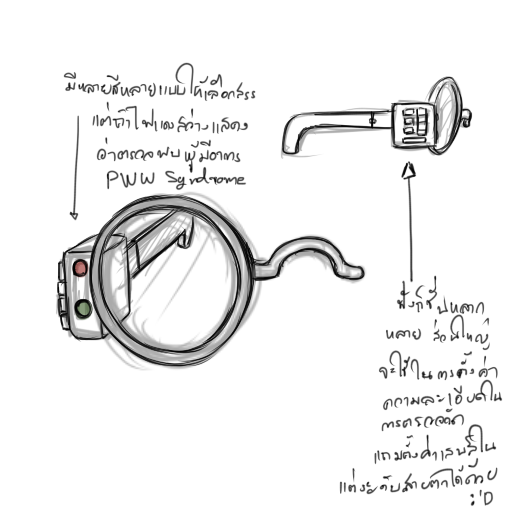 มีหลายสีหลายแบบให้เลือกสรร
แต่ถ้าไฟแดงสว่างแสดง
ว่าตรวจพบผู้มีอาการ
PWW Syndrome
ฟังก์ชั่นหลาก
หลาย ส่วนใหญ่
จะใช้ในการตั้งค่า
ความละเอียดใน
การตรวจวัด
แถมตั้งค่าเลนส์ใน
แต่ระดับสายตาได้ด้วย
:'D